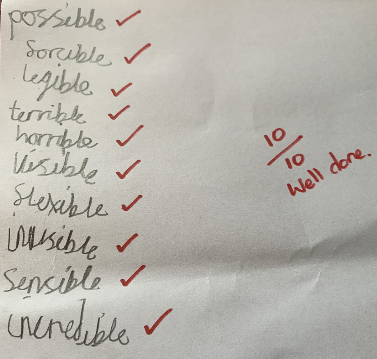 possible
forcible
legible
terrible
horrible
visible
flexible
invisible
sensible
incredible
10
10
Well done.